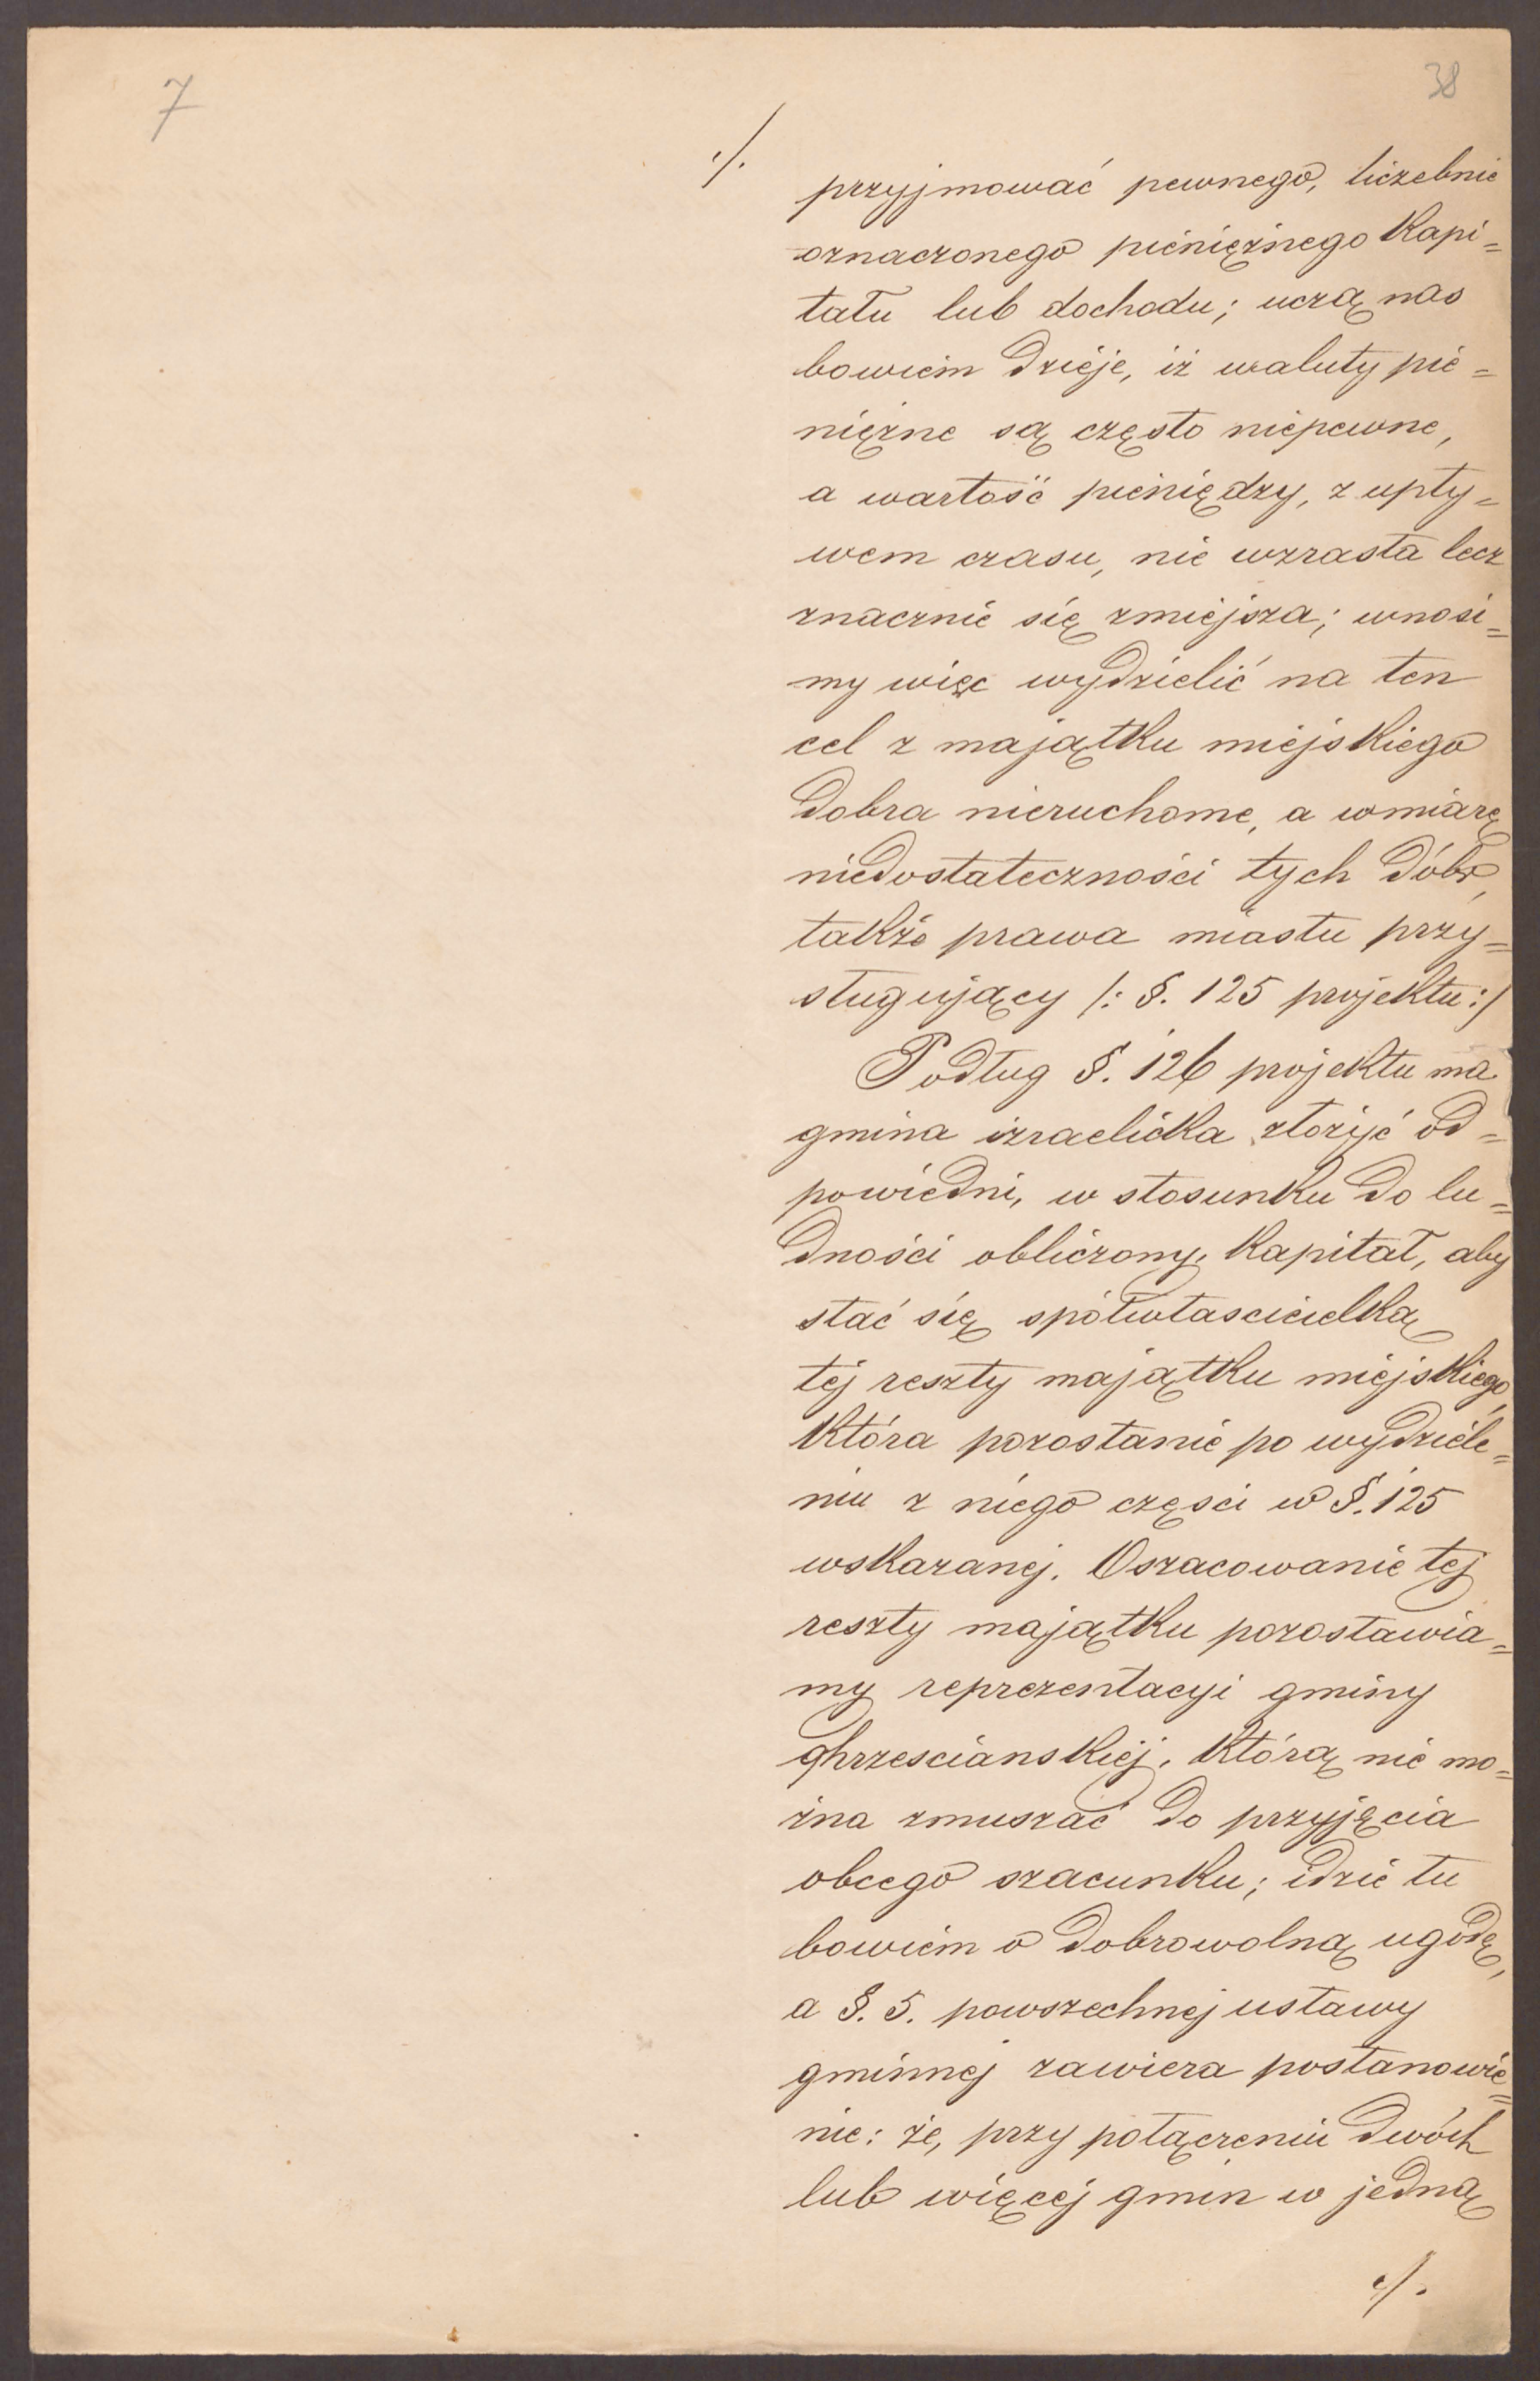 7
38
./.
przyjmować pewnego, liczebnie
oznaczonego pieniężnego kapi=
tału lub dochodu; uczą nas
bowiem dzieje, iż waluty pie=
niężne są często niepewne,
a wartość pieniędzy, z upły=
wem czasu, nie wzrasta lecz
znacznie się zmiejsza; wnosi=
my więc wydzielić na ten
cel z majątku miejskiego
dobra nieruchome, a wmiarę
niedostateczności tych dóbr,
także prawa miastu przy=
sługujący /: §. 125 projektu :/
Podług §. 126 projektu ma
gmina izraelicka złożyć od=
powiedni, w stosunku do lu=
dności obliczony, kapitał, aby
stać się spółwłascicielką
tej reszty majątku miejskiego,
która pozostanie po wydziele=
niu z niego częsci w §. 125
wskazanej. Oszacowanie tej
reszty majątku pozostawia=
my reprezentacyi gminy
chrzescianskiej, którą nie mo=
żna zmuszać do przyjęcia
obcego szacunku; idzie tu
bowiem o dobrowolną ugodę,
a §. 5. powszechnej ustawy
gminnej zawiera postanowie=
nie: że, przy połączeniu dwóch
lub więcej gmin w jedną
./.